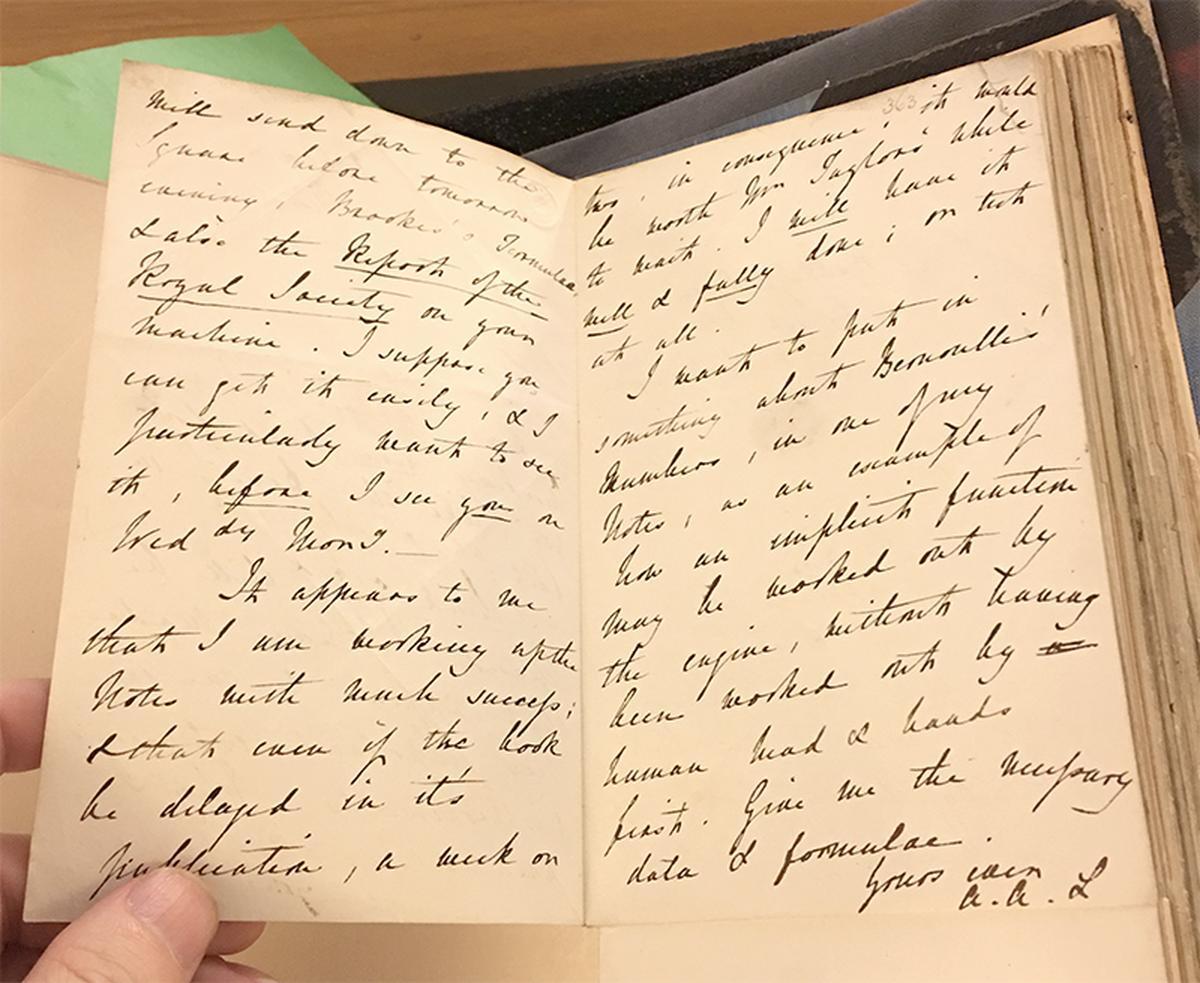 will send down to the
Square before tomorrow
evening, Brooke's Formulae,
& also the Report of the
Royal Society on your
machine. I suppose you
can get it easily, & I
particularly want to see
it, before I see you on
Wed dy Morng.—
It appears to me
that I am working up the
Notes with much success;
& that even if the book
be delayed in it's
publication, a week or
363
two, in consequence, it would
be worth Mr Taylor's while
to wait. I will have it
well & fully done; or not
at all.
I want to put in
something about Bernoulli's
Numbers, in one of my
Notes, as an example of
how an implicit function
may be worked out by
the engine, without having
been worked out by
human head & hands
first. Give me the necessary
data & formulae.
Yours ever
A.A.L